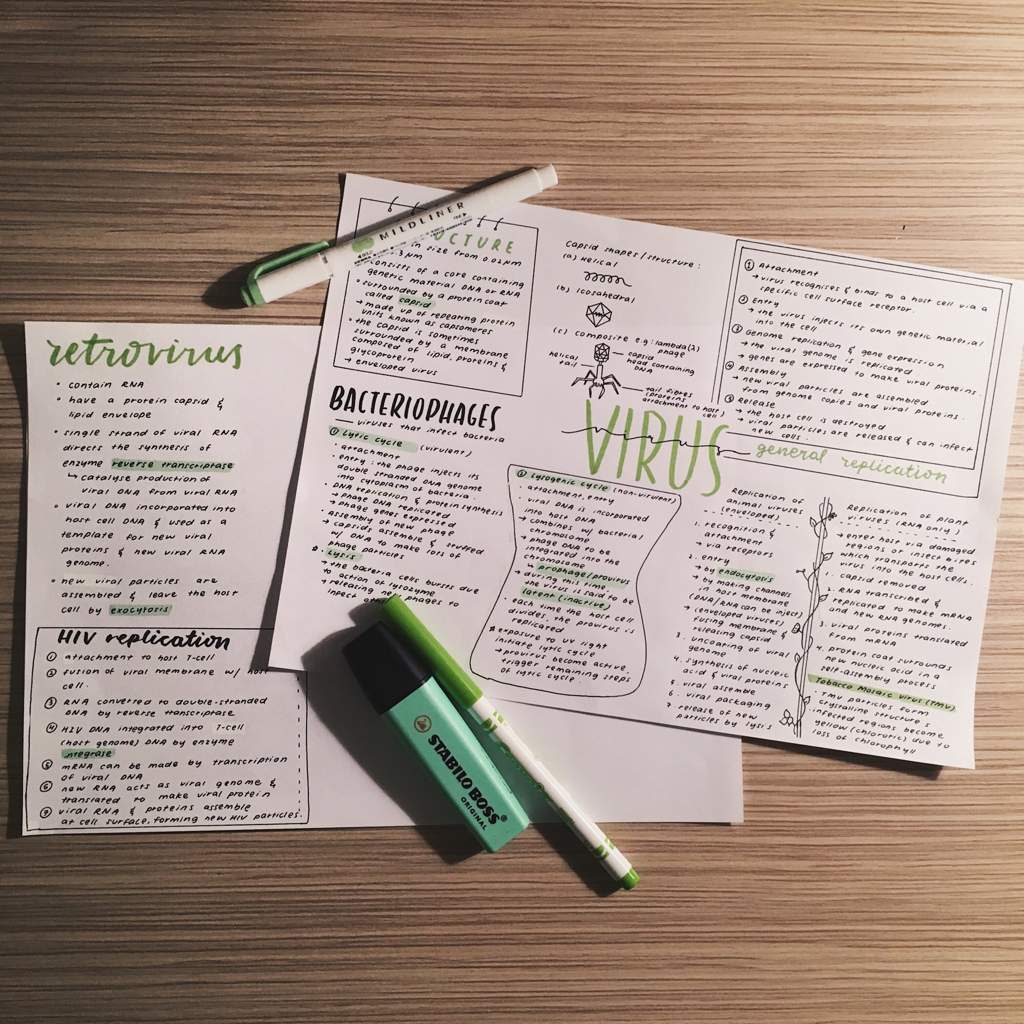 MILDLINER
UCTURE
in size from 0.02µm
3 µm
consists of a core containing
genetic material DNA or RNA
• surrounded by a protein coat
called capsid
→ made up of repeating protein
units known as capsomeres
• the capsid is sometimes
surrounded by a membrane
composed of lipid, proteins &
glycoprotein
→ enveloped virus
Capsid shapes/structure:
(a) Helical
(b) Icosahedral
(c) Composite e.g: lambda(λ)
phage
helical
tail
capsid
head containing
DNA
tail fibres
(proteins
attachment to host)
cell
① Attachment
→ virus recognises & binds to a host cell via a
specific cell surface receptor.
② Entry
→ the virus injects its own genetic material
into the cell
③ Genome replication & gene expression
→ the viral genome is replicated
→ genes are expressed to make viral proteins
④ Assembly
→ new viral particles are assembled
from genome copies and viral proteins.
⑤ Release
→ the host cell is destroyed
→ viral particles are released & can infect
new cells.
general replication
VIRUS
virus
BACTERIOPHAGES
viruses that infect bacteria
① Lytic cycle (virulent)
• attachment
• entry: the phage injects its
double stranded DNA genome
into cytoplasm of bacteria.
• DNA replication & protein synthesis
→ phage DNA replicated
→ phage genes expressed
• assembly of new phage
→ capsids assemble & stuffed
w/ DNA to make lots of
phage particles
Lysis
→ the bacteria cells bursts due
to action of lysozyme
→ releasing new phages to
infect
② Lysogenic cycle (non-virulent)
• attachment, entry
• viral DNA is incorporated
into host DNA
→ combines w/ bacterial
chromosome
→ phage DNA to be
integrated into the
chromosome
→ prophage/provirus
→ during this time,
the virus is said to be
latent (inactive)
• each time the host cell
divides, the provirus is
replicated
* exposure to UV light
initiate lytic cycle
→ provirus become active,
trigger remaining steps
of lytic cycle.
Replication of
animal viruses
(enveloped)
1. recognition &
attachment
→ via receptors
2. entry
→ by endocytosis
→ by making channels
in host membrane
(DNA/RNA can be inject)
(enveloped viruses)
fusing membrane &
releasing capsid
3. uncoating of viral
genome
4. synthesis of nucleic
acid & viral proteins
5. viral assemble
6. viral packaging
7. release of new
particles by lysis
Replication of plant
viruses (RNA only)
→ enter host via damaged
regions or insect bites
which transports the
virus into the host cells.
1. capsid removed
2. RNA transcribed &
replicated to make mRNA
and new RNA genomes.
3. viral proteins translated
from mRNA
4. protein coat surrounds
new nucleic acid in a
self-assembly process
Tobacco Mosaic virus (TMV)
• TMV particles form
crystalline structures
• infected regions become
yellow (chlorotic) due to
loss of chlorophyll
retrovirus
• contain RNA
• have a protein capsid &
lipid envelope
• single strand of viral RNA
directs the synthesis of
enzyme reverse transcriptase
↳ catalyse production of
viral DNA from viral RNA
• viral DNA incorporated into
host cell DNA & used as a
template for new viral
proteins & new viral RNA
genome.
• new viral particles are
assembled & leave the host
cell by exocytosis
HIV replication
① attachment to host T-cell
② fusion of viral membrane w/ host
cell.
③ RNA converted to double-stranded
DNA by reverse transcriptase
④ HIV DNA integrated into T-cell
(host genome) DNA by enzyme
integrase
⑤ mRNA can be made by transcription
of viral DNA
⑥ new RNA acts as viral genome &
translated to make viral protein
⑦ viral RNA & proteins assemble
at cell surface, forming new HIV particles.
STABILO BOSS
ORIGINAL